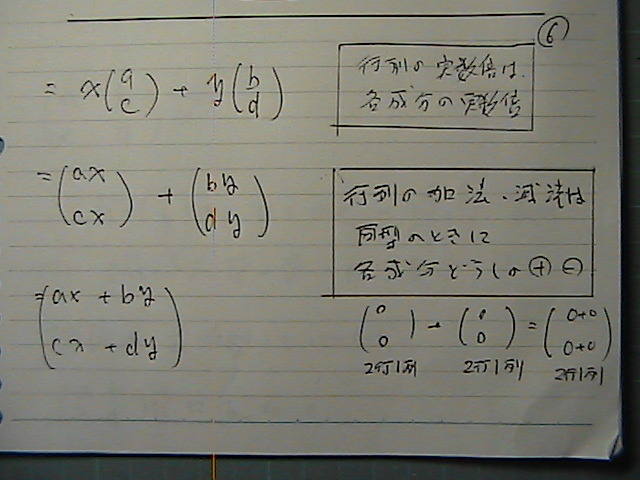 ⑥
= x(a c) + y(b d)
行列の実数倍は、
各成分の実数倍
= (ax cx) + (by dy)
行列の加法、減法は
同型のときに
各成分どうしの⊕⊖
= (ax + by cx + dy)
(0 0) + (0 0) = (0+0 0+0)
2行1列 2行1列 2行1列